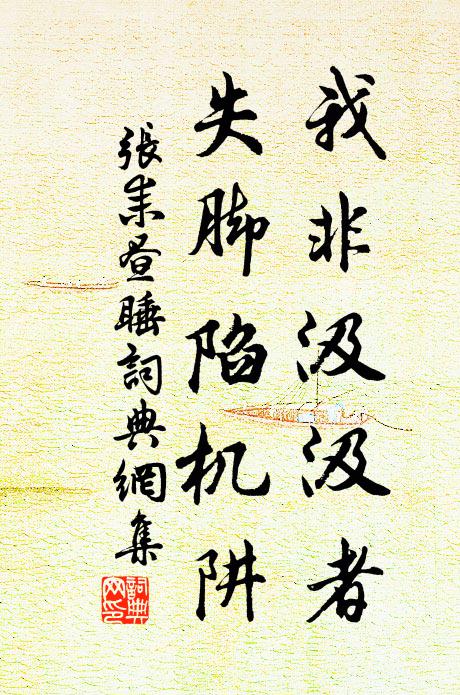 我非汲汲者
失脚陷机阱
張耒昼睡詞典網集
詞典网印